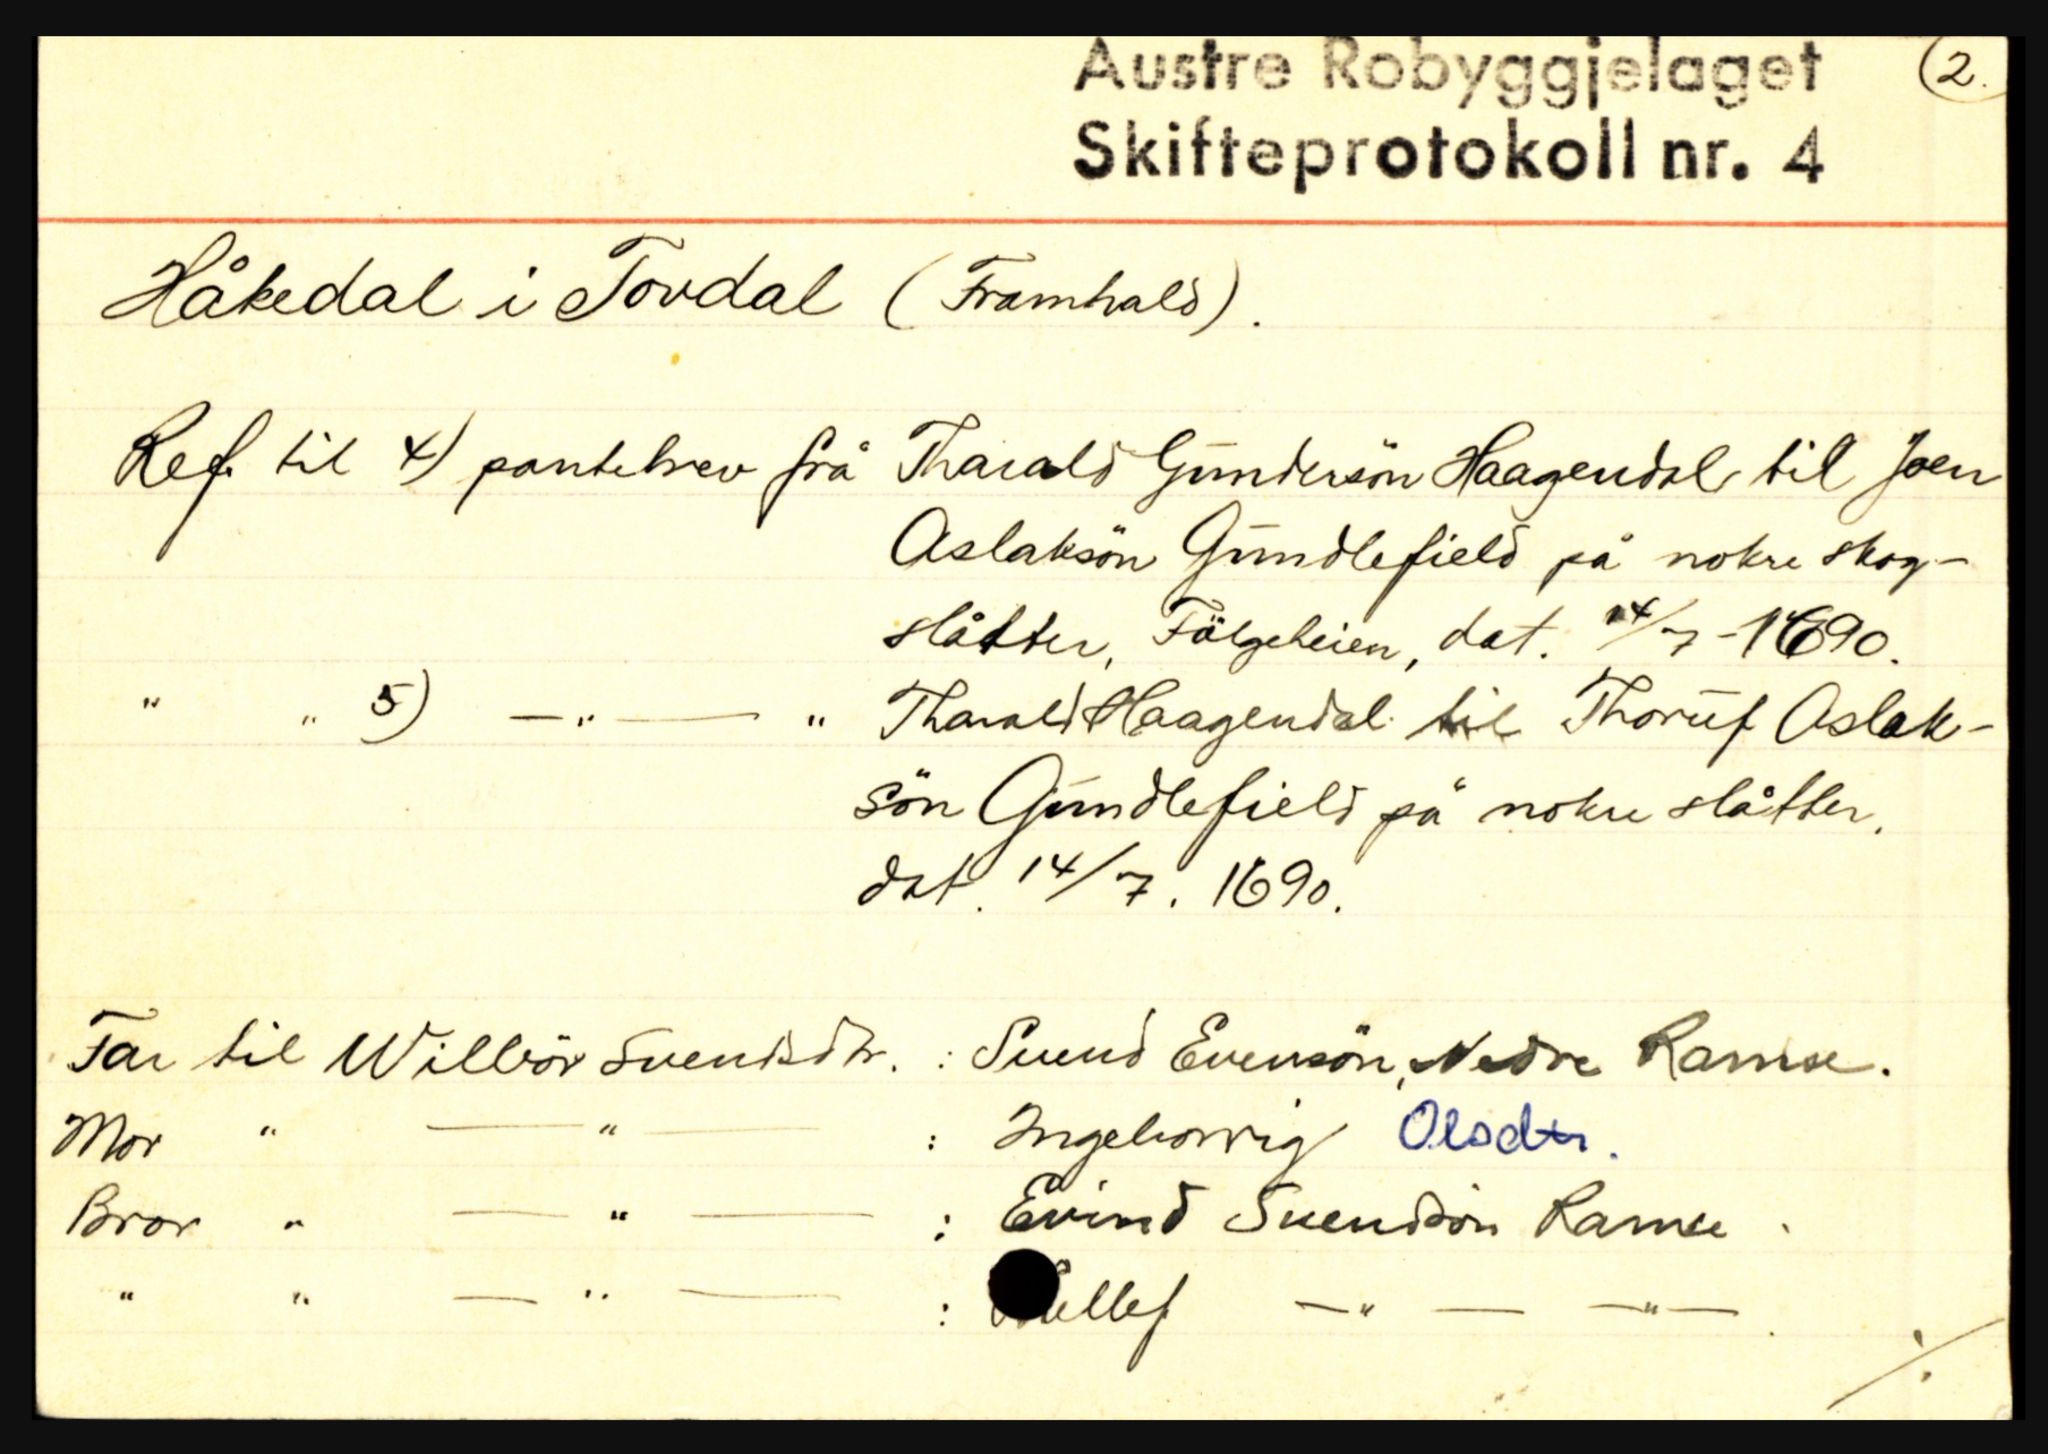 Austre Robyggjelaget (2.
Skifteprotokoll nr. 4
Håkedal i Tovdal (Framhald).
Ref. til 4) pantebrev frå Tharald Gŭndersön Haagendal til Joen
Aslaksön Gŭndlefield på nokre skog-
slåtter, Fölgeheien, dat. 14/7-1690.
" " 5) —"— " Tharald Haagendal til Thorŭf Aslak-
sön Gŭndlefield på nokre slåtter,
dat. 14/7. 1690.
Far til Willbör Svendsdtr. : Svend Evensön, Nedre Ramse.
Mor " —"— : Ingeborrig Olsdtr.
Bror " —"— : Evind Svendsön Ramse.
" " —"— : ellef —"— —"—.
./.